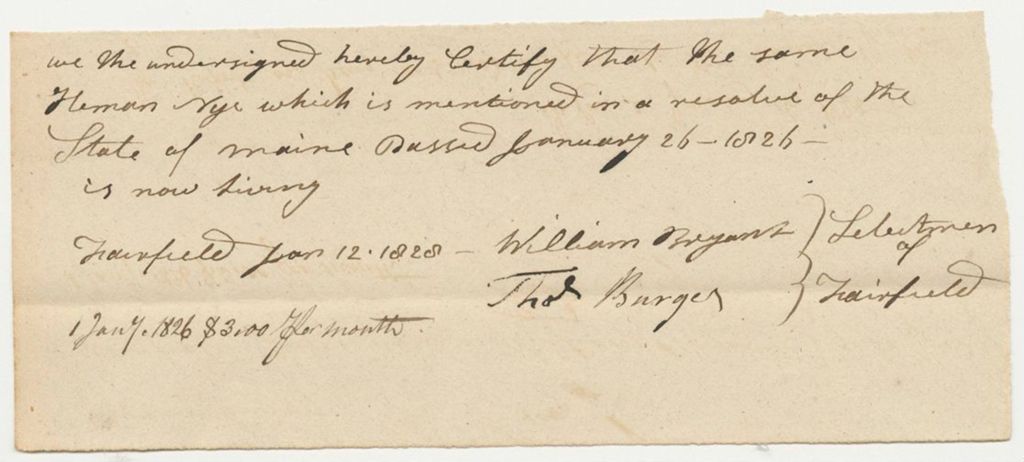 we the undersigned hereby Certify that the same
Heman Nye which is mentioned in a resolve of the
State of maine Passed January 26 - 1826 -
is now living
Fairfield Jan 12. 1828 - William Bryant } Selectmen
of
Thos Burges } Fairfield
1 Jany. 1826 $3.00 per month.